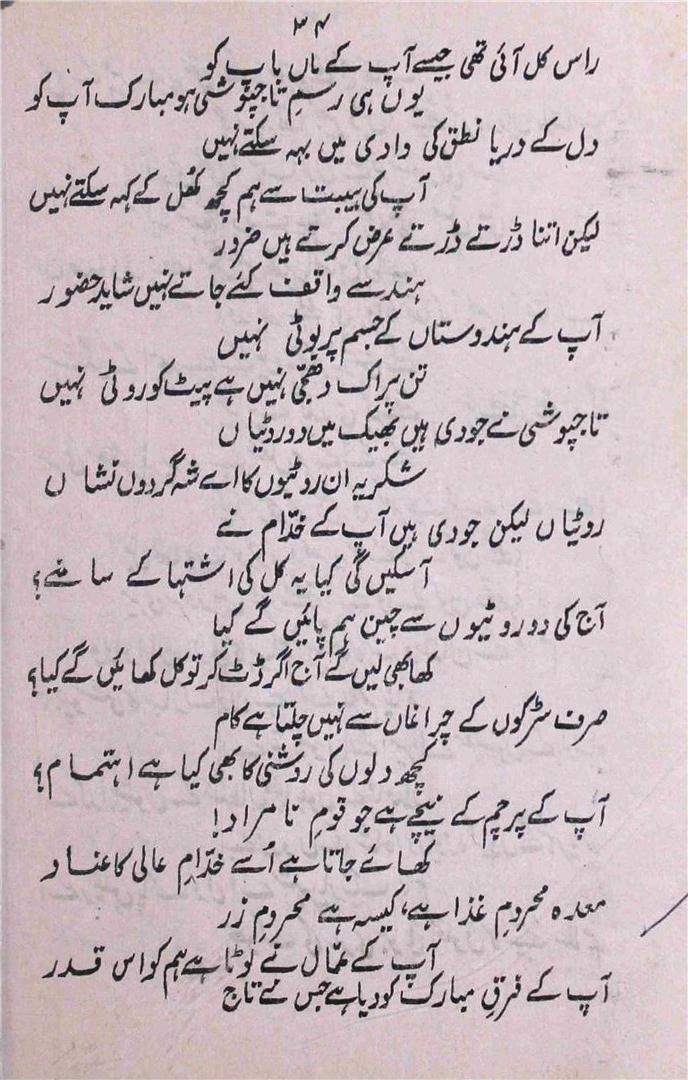 ۳۴
راس کل آئی تھی جیسے آپ کے ماں باپ کو
یوں ہی رسمِ تاجپوشی ہو مبارک آپ کو
دل کے دریا نطق کی وادی میں بہہ سکتے نہیں
آپ کی ہیبت سے ہم کچھ کُھل کے کہہ سکتے نہیں
لیکن اتنا ڈرتے ڈرتے عرض کرتے ہیں ضرور
ہند سے واقف کئے جاتے نہیں شاید حضور
آپ کے ہندوستاں کے جسم پر بوٹی نہیں
تن پر اک دھجّی نہیں ہے پیٹ کو روٹی نہیں
تاجپوشی نے جو دی ہیں بھیک میں دو روٹیاں
شکریہ ان روٹیوں کا اے شہِ گردوں نشاں
روٹیاں لیکن جو دی ہیں آپ کے خدّام نے
آسکیں گی کیا یہ کل کی اشتہا کے سامنے؟
آج کی دو روٹیوں سے چین ہم پائیں گے کیا
کھا بھی لیں گے آج اگر ڈٹ کر تو کل کھائیں گے کیا؟
صرف سڑکوں کے چراغاں سے نہیں چلتا ہے کام
کچھ دلوں کی روشنی کا بھی کیا ہے اہتمام؟
آپ کے پرچم کے نیچے ہے جو قومِ نامراد!
کھائے جاتا ہے اُسے خدّامِ عالی کا عناد
معدہ محرومِ غذا ہے، کیسہ ہے محرومِ زر
آپ کے عمّال نے لوٹا ہے ہم کو اس قدر
آپ کے فرقِ مبارک کو دیا ہے جس نے تاج